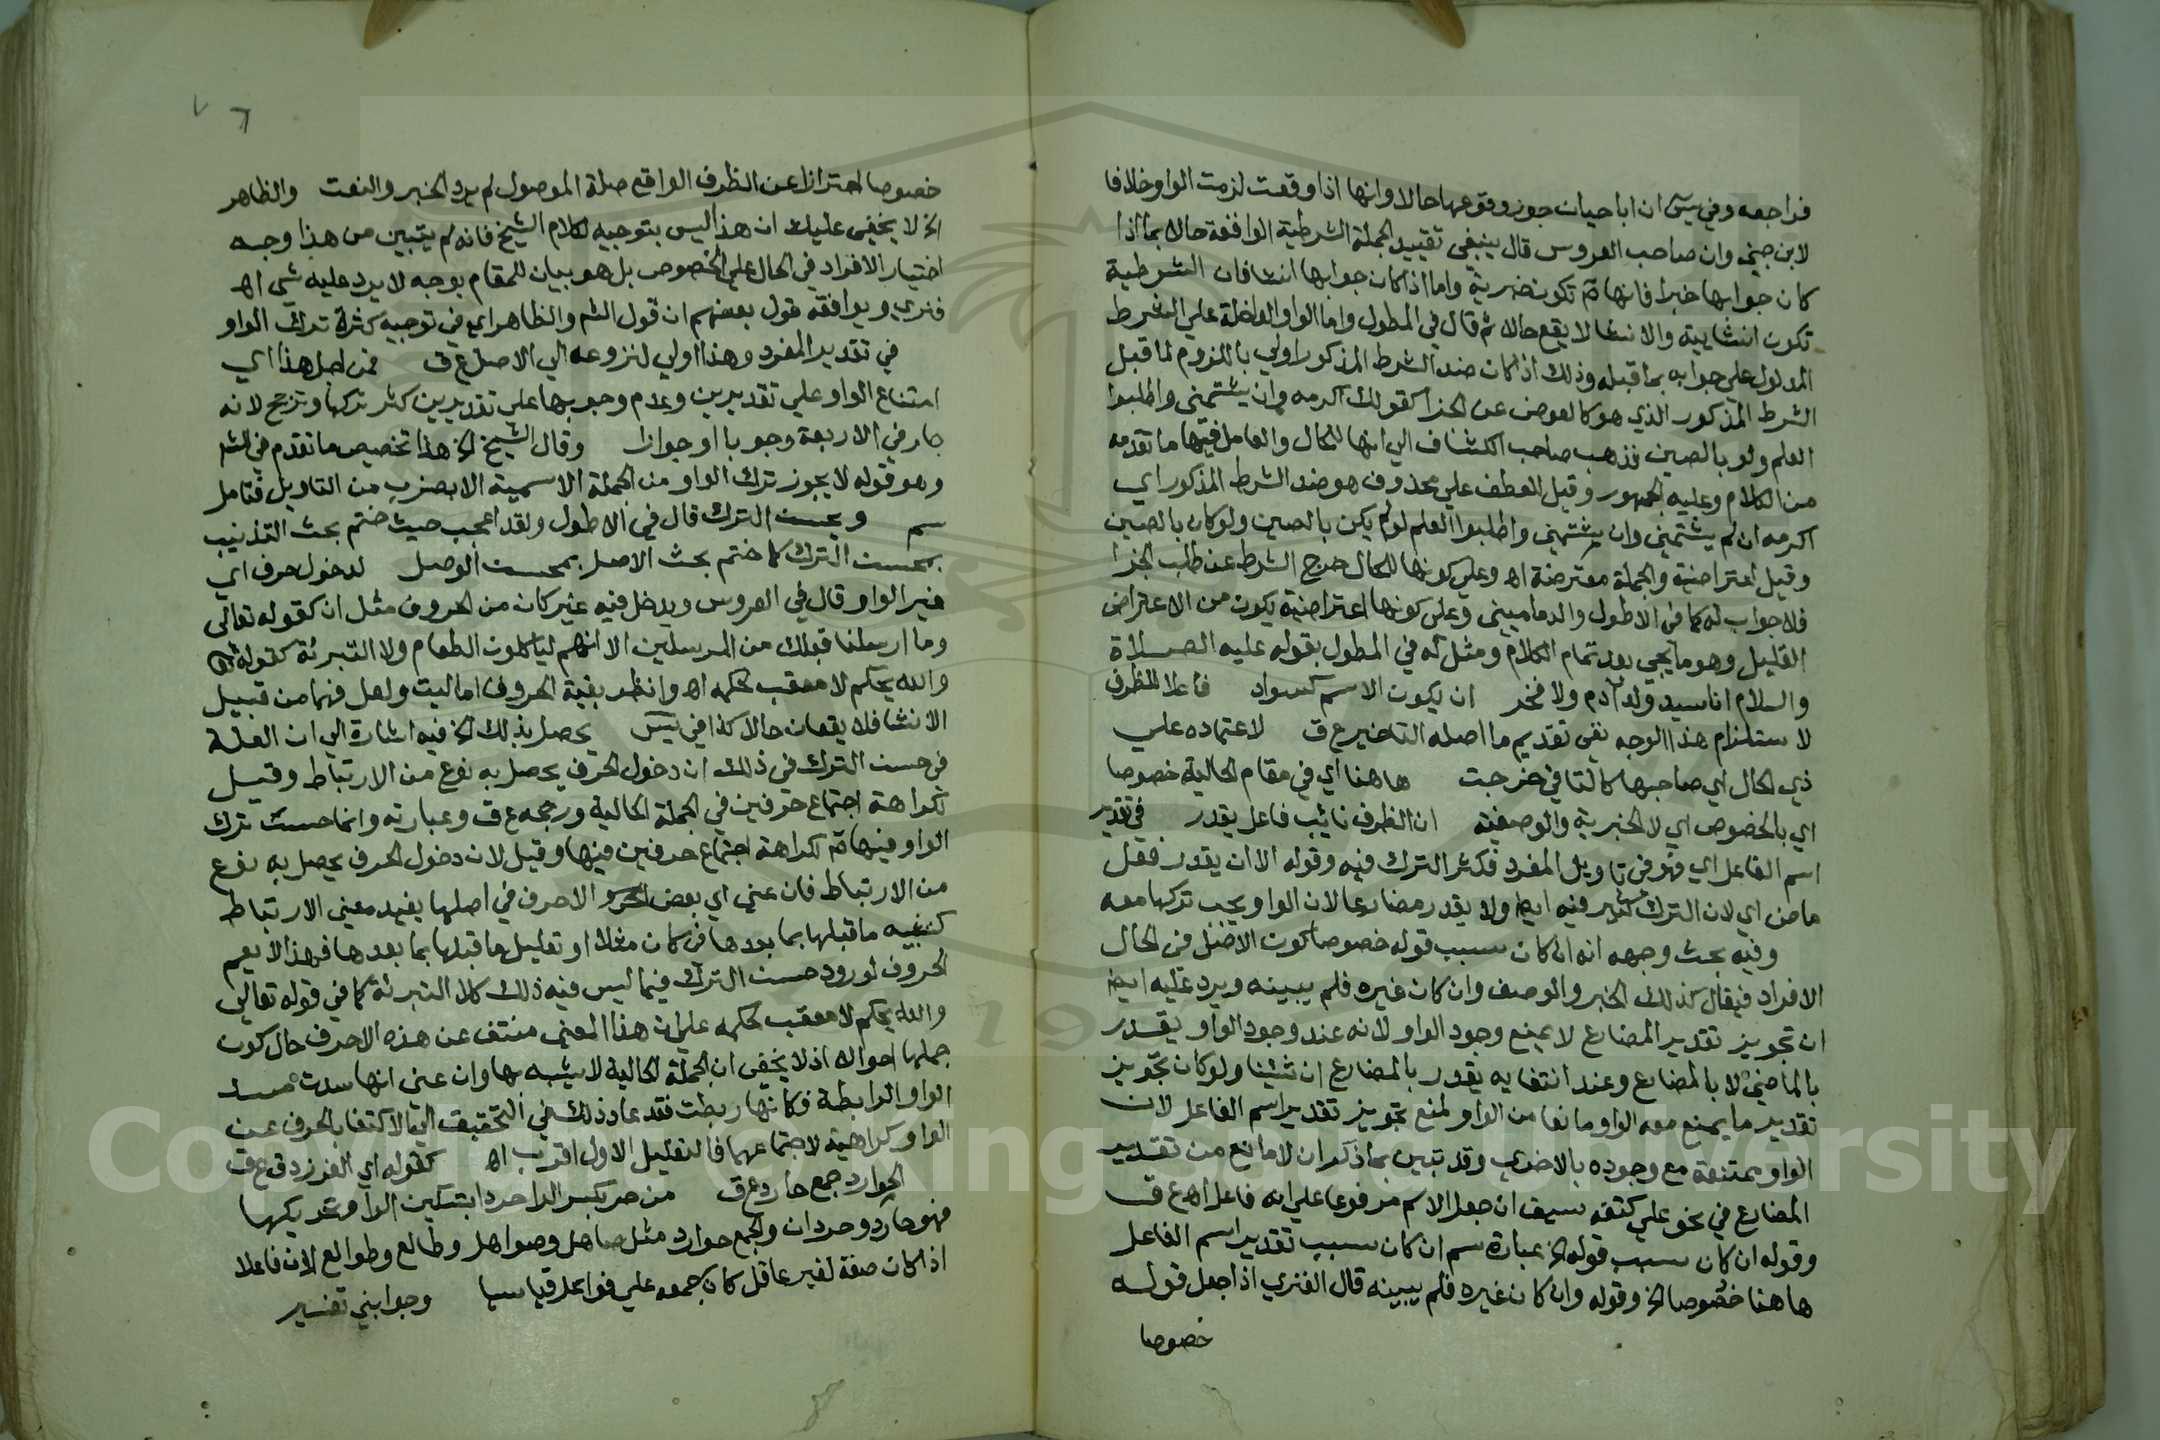 فراجعه وفي يس ان ابا حيان جوز وقوعها حالا وانها اذا وقعت لزمت الواو خلافا
لابن جني وان صاحب العروس قال ينبغي تقييد الجملة الشرطية الواقعة حالا بما اذا
كان جوابها خبرا فانها ح تكون خبرية واما اذا كان جوابها انشا فان الشرطية
تكون انشايية والانشا لا يقع حالا ثم قال في المطول واما الواو الداخلة علي الشرط
المدلول علي جوابه بما قبله وذلك اذا كان ضد الشرط المذكور اولي باللزوم لما قبل
الشرط المذكور الذي هو كالعوض عن الجزا كقولك اكرمه وان يشتمني واطلبوا
العلم ولو بالصين فذهب صاحب الكشاف الي انها للحال والعامل فيها ما تقدمه
من الكلام وعليه الجمهور وقيل للعطف علي محذوف هو ضد الشرط المذكور اي
اكرمه ان لم يشتمني وان يشتمني واطلبوا العلم لو لم يكن بالصين ولو كان بالصين
وقيل اعتراضية والجملة معترضة اه وعلي كونها للحال خرج الشرط عن طلب الجزا
فلا جواب له كما في الاطول والدماميني وعلي كونها اعتراضية يكون من الاعتراض
القليل وهو ما يجي بعد تمام الكلام ومثل له في المطول بقوله عليه الصلاة
والسلام انا سيد ولد آدم ولا فخر ان يكون الاسم كسواد فاعلا للظرف
لاستلزام هذا الوجه نفي تقديم ما اصله التاخير ع ق لاعتماده علي
ذي الحال اي صاحبها كالتا في خرجت هاهنا اي في مقام الحالية خصوصا
اي بالخصوص اي لا الخبرية والوصفية ان الظرف نائب فاعل يقدر في تقدير
اسم الفاعل اي فهو في تاويل المفرد فكثر الترك فيه وقوله الا ان يقدر فعل
ماض اي لان الترك كثير فيه ايضا ولا يقدر مضارعا لان الواو يجب تركها معه
وفيه بحث وجهه انه ان كان سبب قوله خصوصا كون الاصل في الحال
الافراد فيقال كذلك الخبر والوصف وان كان غيره فلم يبينه ويرد عليه ايضا
ان تجويز تقدير المضارع لا يمنع وجود الواو لانه عند وجود الواو يقدر
بالماضي لا بالمضارع وعند انتفايه يقدر بالمضارع ان شئنا ولو كان تجويز
تقدير ما يمنع معه الواو مانعا من الواو لمنع تجويز تقدير اسم الفاعل لان
الواو ممتنعة مع وجوده بالاحري وقد تبين بما ذكر ان لا مانع من تقدير
المضارع في نحو علي كتفه سيف ان جعل الاسم مرفوعا علي انه فاعل اه ع ق
وقوله ان كان سبب قوله الخ عبارة سم ان كان سبب تقدير اسم الفاعل
هاهنا خصوصا الخ وقوله وان كان غيره فلم يبينه قال الفنري اذا جعل قوله
خصوصا
٧ ٦
خصوصا احترازا عن الظرف الواقع صلة الموصول لم يرد الخبر والنعت والظاهر
الخ لا يخفي عليك ان هذا ليس بتوجيه لكلام الشيخ فانه لم يتبين من هذا وجه
اختيار الافراد في الحال علي الخصوص بل هو بيان للمقام بوجه لا يرد عليه شي اه
فنري ويوافقه قول بعضهم ان قول الش والظاهر اي في توجيه كثرة ترك الواو
في تقدير المفرد وهذا اولي لنزوعه الي الاصل ع ق فمن اجل هذا اي
امتناع الواو علي تقديرين وعدم وجوبها علي تقديرين كثر تركها وترجح لانه
جار في الاربعة وجوبا او جوازا وقال الشيخ الخ هذا تخصيص ما تقدم في الش
وهو قوله لا يجوز ترك الواو من الجملة الاسمية الا بضرب من التاويل فتامل
سم ويحسن الترك قال في الاطول ولقد اعجب حيث ختم بحث التذنيب
بمحسن الترك كما ختم بحث الاصل بمحسن الوصل لدخول حرف اي
غير الواو قال في العروس ويدخل فيه غير كان من الحروف مثل ان كقوله تعالي
وما ارسلنا قبلك من المرسلين الا انهم لياكلون الطعام ولا التبرئة كقوله تعالي
والله يحكم لا معقب لحكمه اه وانظر بقية الحروف اما ليت ولعل فهما من قبيل
الانشا فلا يقعان حالا كذا في يس يحصل بذلك الخ فيه اشارة الي ان العلة
في حسن الترك في ذلك ان دخول الحرف يحصل به نوع من الارتباط وقيل
لكراهة اجتماع حرفين في الجملة الحالية ورجحه ع ق وعبارته وانما حسن ترك
الواو فيها ح لكراهة اجتماع حرفين فيها وقيل لان دخول الحرف يحصل به نوع
من الارتباط فان عني اي بعض الاحرف في اصلها يفيد معني الارتباط
كتشبيه ما قبلها بما بعدها في كان مثلا او تعليل ما قبلها بما بعدها فهذا لا يعم
الحروف لورود حسن الترك فيما ليس فيه ذلك كلا التبرئة كما في قوله تعالي
والله يحكم لا معقب لحكمه علي ان هذا المعني منتف عن هذه الاحرف حال كون
جملها احوالا اذ لا يخفي ان الجملة الحالية لا يشبه بها وان عني انها سدت مسد
الواو الرابطة فكانها ربطت فقد عاد ذلك في التحقيق الي الاكتفا بالحرف عن
الواو كراهية لاجتماعهما فالتعليل الاول اقرب اه كقوله اي الفرزدق ع ق
الحوارد جمع حارد ع ق من حرد بكسر الرا حردا بتسكين الرا وتحريكها
فهو حارد وحردان والجمع حوارد مثل صاهل وصواهل وطالع وطوالع لان فاعلا
اذا كان صفة لغير عاقل كان جمعه علي فواعل قياسيا وحوا بني تفسير